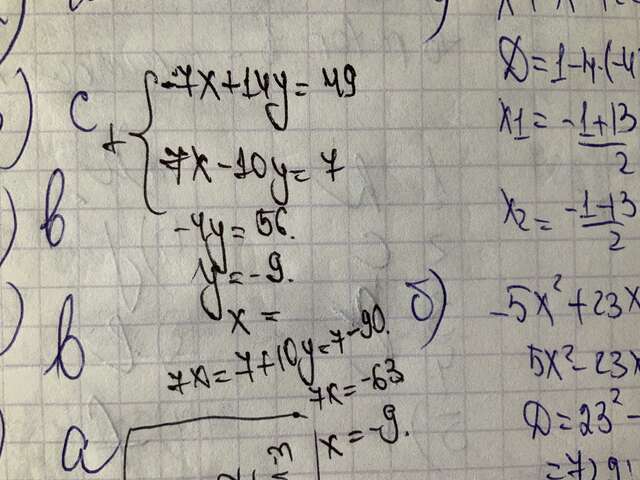 c + -7x+14y=49
7x-10y=7
b
-4y=56.
y=-9.
x=
b
7x=7+10y=7-90.
7x=-63
x=-9.
a
D=1-4·(-4
x1=-1+13
2
x2=-1-13
2
б)
-5x²+23x
5x²-23x
D=23²-